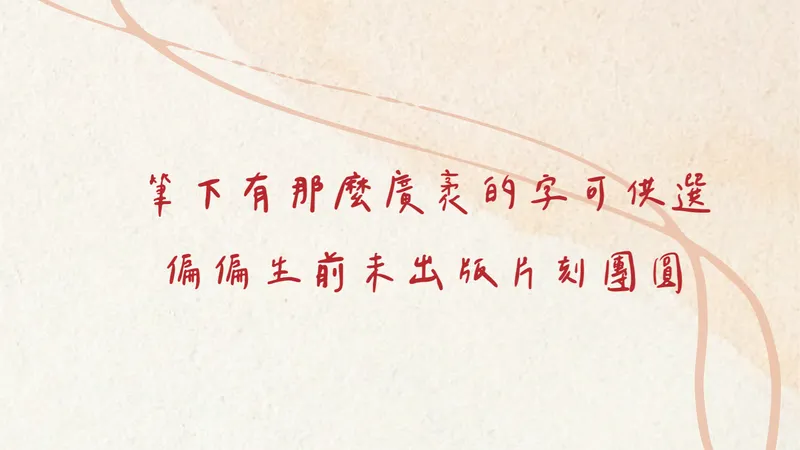 筆下有那麼廣袤的字可供選
偏偏生前未出版片刻團圓